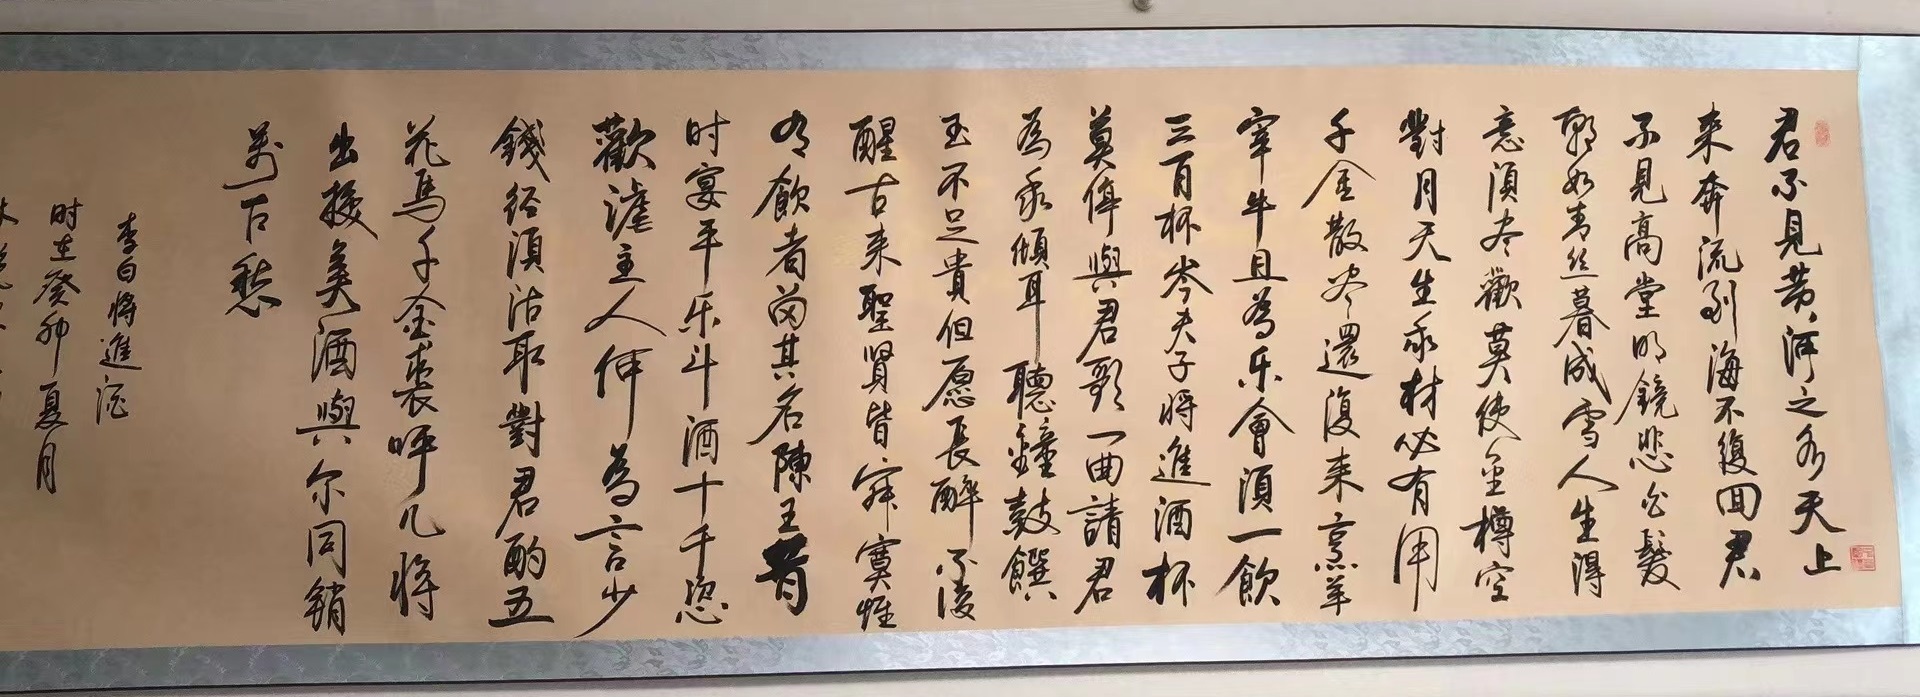 君不見黄河之水天上
来奔流到海不復回君
不見高堂明鏡悲白髮
朝如青丝暮成雪人生得
意須尽歡莫使金樽空
對月天生我材必有用
千金散尽還復来烹羊
宰牛且為乐會須一飲
三百杯岑夫子将進酒杯
莫停與君歌一曲請君
為我傾耳聽鐘鼓饌
玉不足貴但愿長醉不復
醒古来聖賢皆寂寞惟
有飲者留其名陳王昔
时宴平乐斗酒十千恣
歡謔主人何為言少
錢径須沽取對君酌五
花馬千金裘呼儿将
出換美酒與尔同銷
萬古愁
李白将進酒
时在癸卯夏月